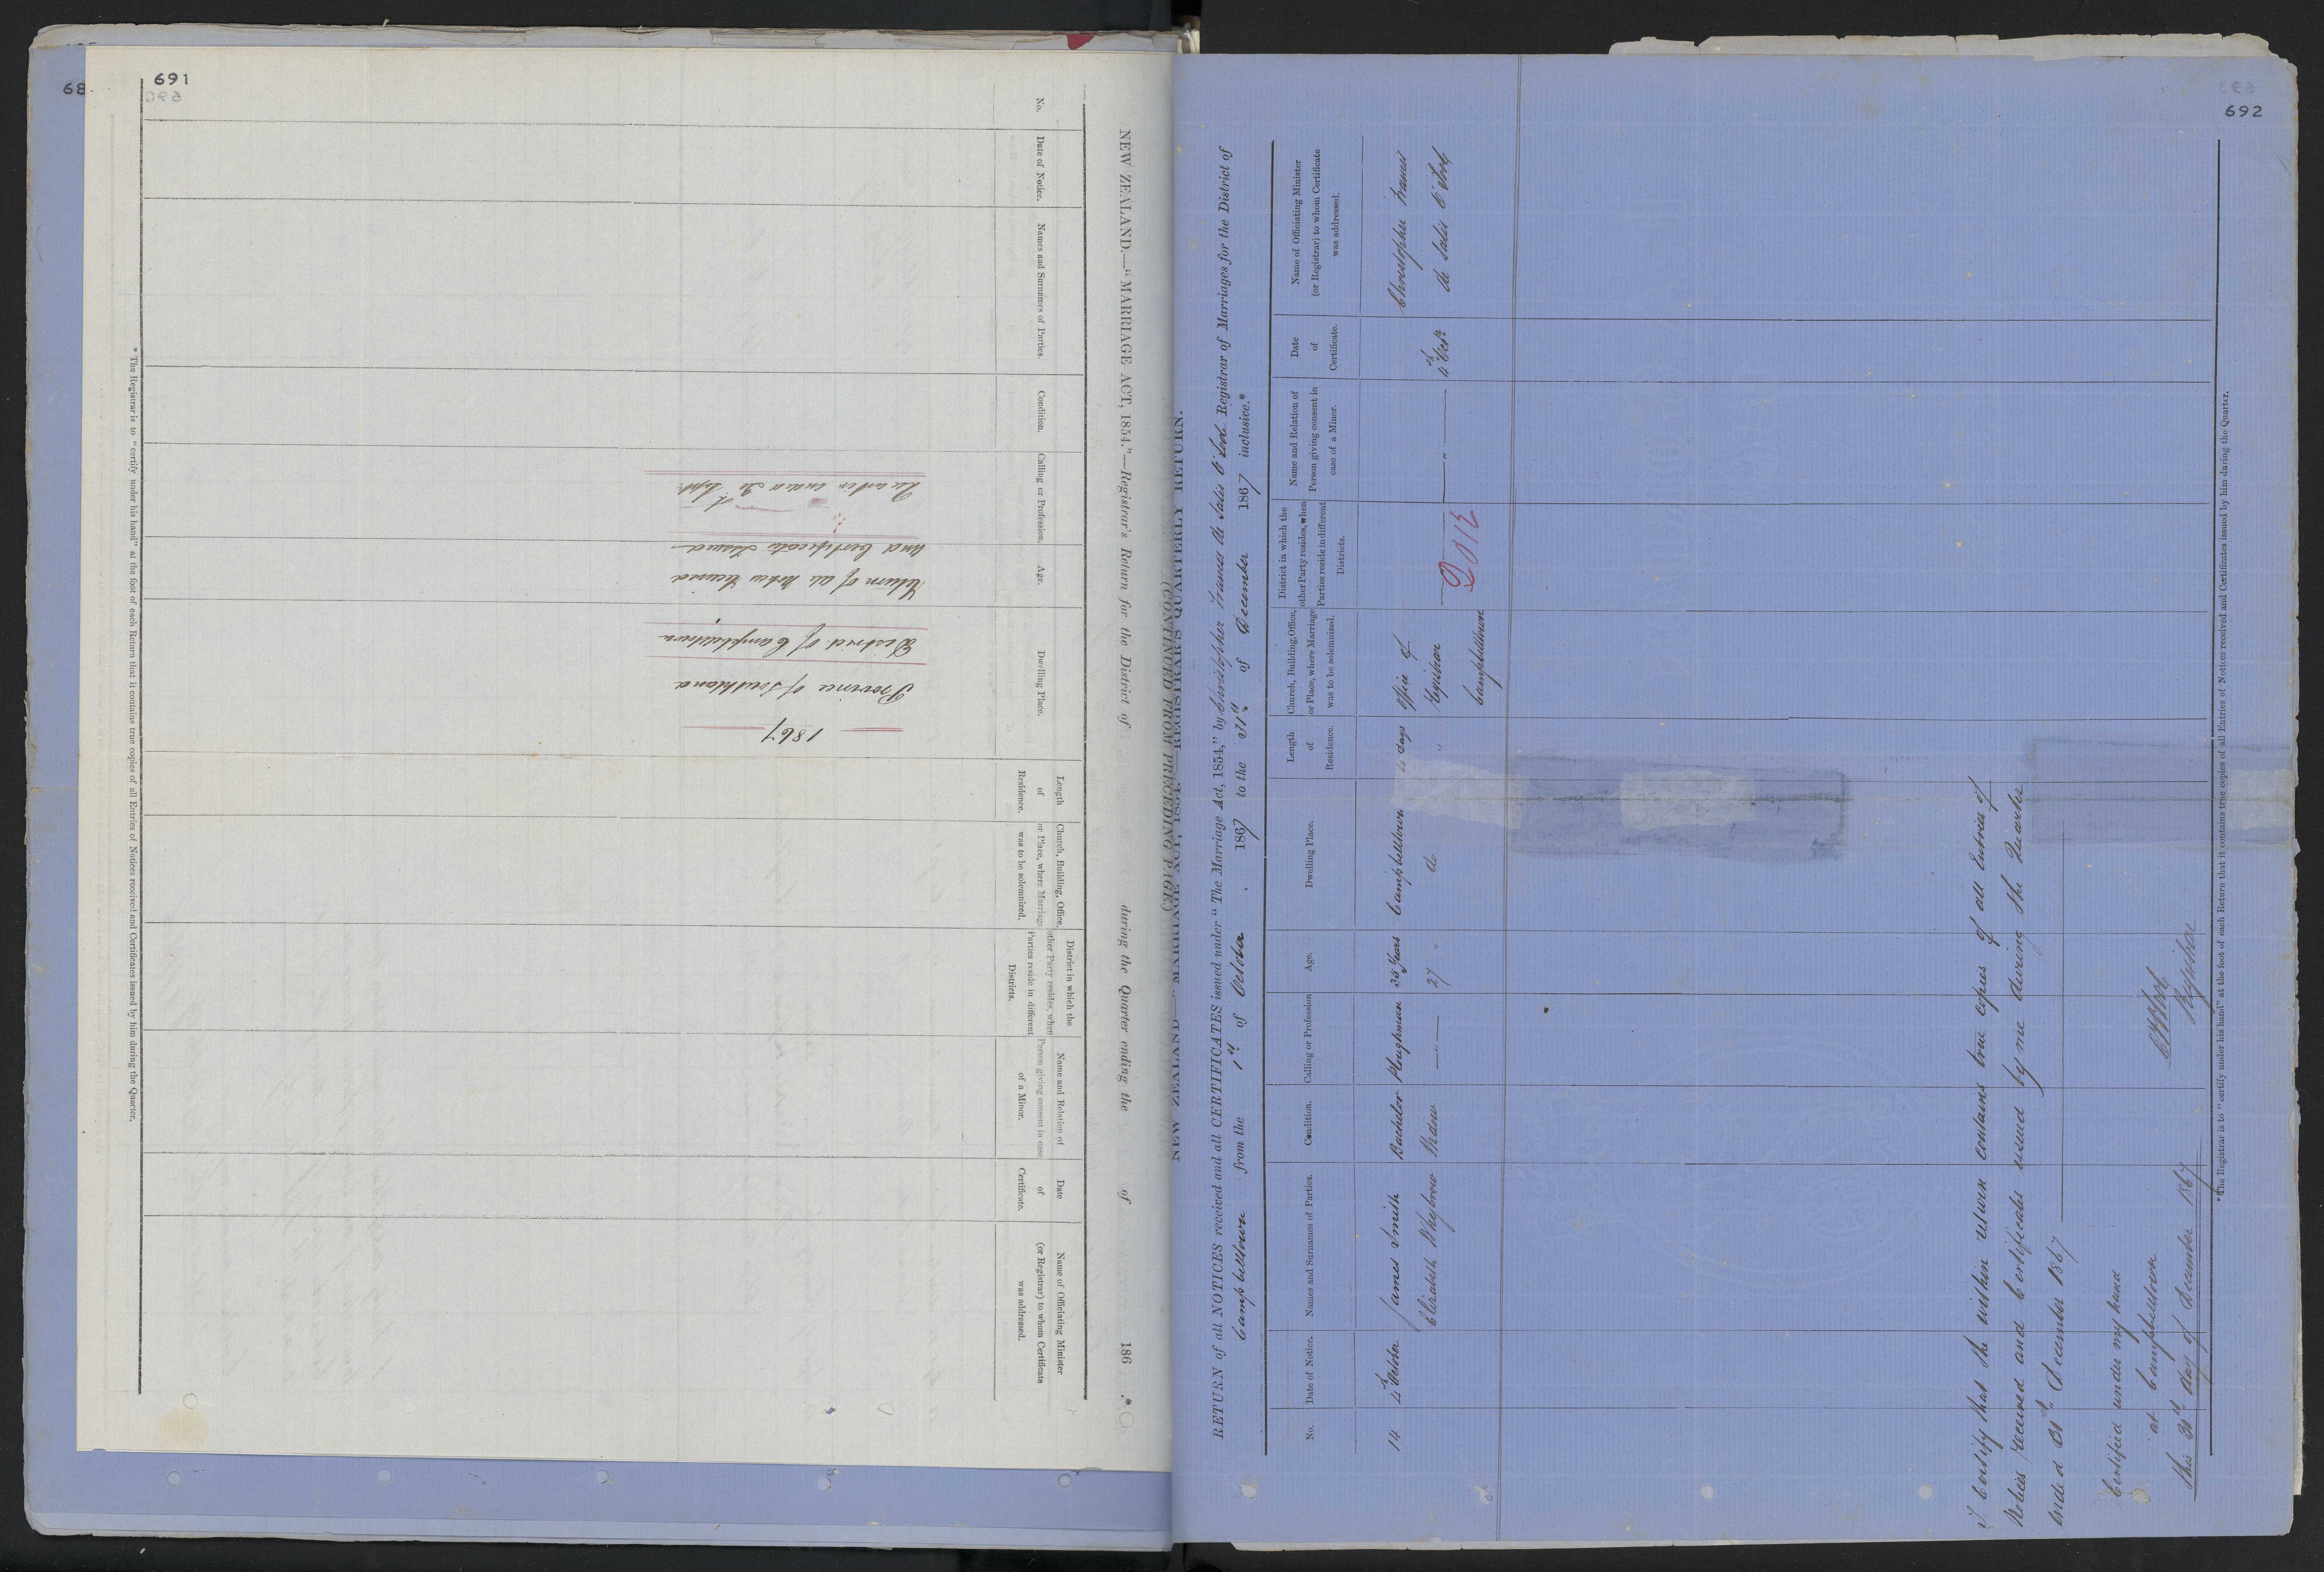 68
691
NEW ZEALAND.—"MARRIAGE ACT, 1854."—Registrar's Return for the District of during the Quarter ending the of 186 .*
No.
Date of Notice.
Names and Surnames of Parties.
Condition.
Calling or Profession.
Age.
Dwelling Place.
Length of Residence.
Church, Building, Office, or Place, where Marriage was to be solemnized.
District in which the other Party resides, when Parties reside in different Districts.
Name and Relation of Person giving consent in case of a Minor.
Date of Certificate.
Name of Officiating Minister (or Registrar) to whom Certificate was addressed.
1867
Province of Southland
District of Campbelltown
Return of all Notices Received
and Certificates Issued
Quarter ended 30 Sept.
* The Registrar is to "certify under his hand" at the foot of each Return that it contains true copies of all Entries of Notices received and Certificates issued by him during the Quarter.
692
NEW ZEALAND—"MARRIAGE ACT, 1854."—REGISTRAR'S QUARTERLY RETURN.
(CONTINUED FROM PRECEDING PAGE)
RETURN of all NOTICES received and all CERTIFICATES issued under "The Marriage Act, 1854," by Christopher Francis de Salis Registrar of Marriages for the District of
Campbelltown from the 1st of October 1867 to the 31st of December 1867 inclusive.*
No.
Date of Notice.
Names and Surnames of Parties.
Condition.
Calling or Profession
Age.
Dwelling Place.
Length of Residence.
Church, Building, Office, or Place, where Marriage was to be solemnized.
District in which the other Party resides, when Parties reside in different Districts.
Name and Relation of Person giving consent in case of a Minor.
Date of Certificate.
Name of Officiating Minister (or Registrar) to whom Certificate was addressed.
14 4th October James Smith Bachelor Ploughman 35 Years Campbelltown 4 days Office of Christopher Francis
Elizabeth Whybrow Widow — " — 27 " do " Registrar — " — 4th Octr de Salis
Campbelltown
2012
I Certify that the within return contains true copies of all Entries of
Notices received and Certificates issued by me during the Quarter
ended 31st December 1867
Certified under my hand
at Campbelltown
this 31st day of December 1867
Registrar
* The Registrar is to "certify under his hand" at the foot of each Return that it contains true copies of all Entries of Notices received and Certificates issued by him during the Quarter.